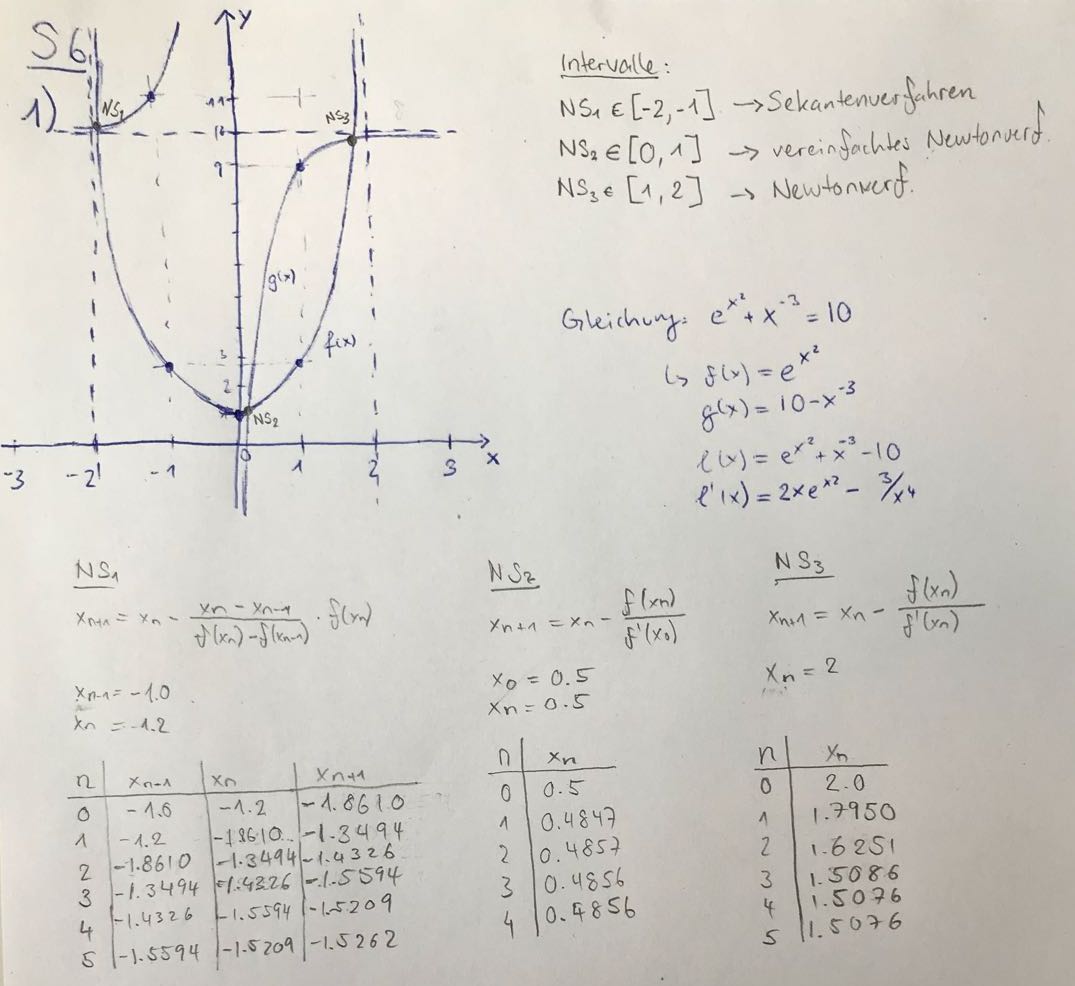 S6
1)
y
NS1
NS3
11
10
9
g(x)
f(x)
3
2
NS2
-3 -2 -1 0 1 2 3 x
Intervalle:
NS1 ∈ [-2,-1] → Sekantenverfahren
NS2 ∈ [0,1] → vereinfachtes Newtonverf.
NS3 ∈ [1,2] → Newtonverf.
Gleichung: e^x² + x^-3 = 10
↳ f(x) = e^x²
g(x) = 10 - x^-3
l(x) = e^x² + x^-3 - 10
l'(x) = 2xe^x² - 3/x⁴
NS1
xn+1 = xn - (xn - xn-1)/(f(xn) - f(xn-1)) · f(xn)
xn-1 = -1.0
xn = -1.2
n | xn-1 | xn | xn+1
0 | -1.0 | -1.2 | -1.8610
1 | -1.2 | -1.8610 | -1.3494
2 | -1.8610 | -1.3494 | -1.4326
3 | -1.3494 | -1.4326 | -1.5594
4 | -1.4326 | -1.5594 | -1.5209
5 | -1.5594 | -1.5209 | -1.5262
NS2
xn+1 = xn - f(xn)/f'(x0)
x0 = 0.5
xn = 0.5
n | xn
0 | 0.5
1 | 0.4847
2 | 0.4857
3 | 0.4856
4 | 0.4856
NS3
xn+1 = xn - f(xn)/f'(xn)
xn = 2
n | xn
0 | 2.0
1 | 1.7950
2 | 1.6251
3 | 1.5086
4 | 1.5076
5 | 1.5076